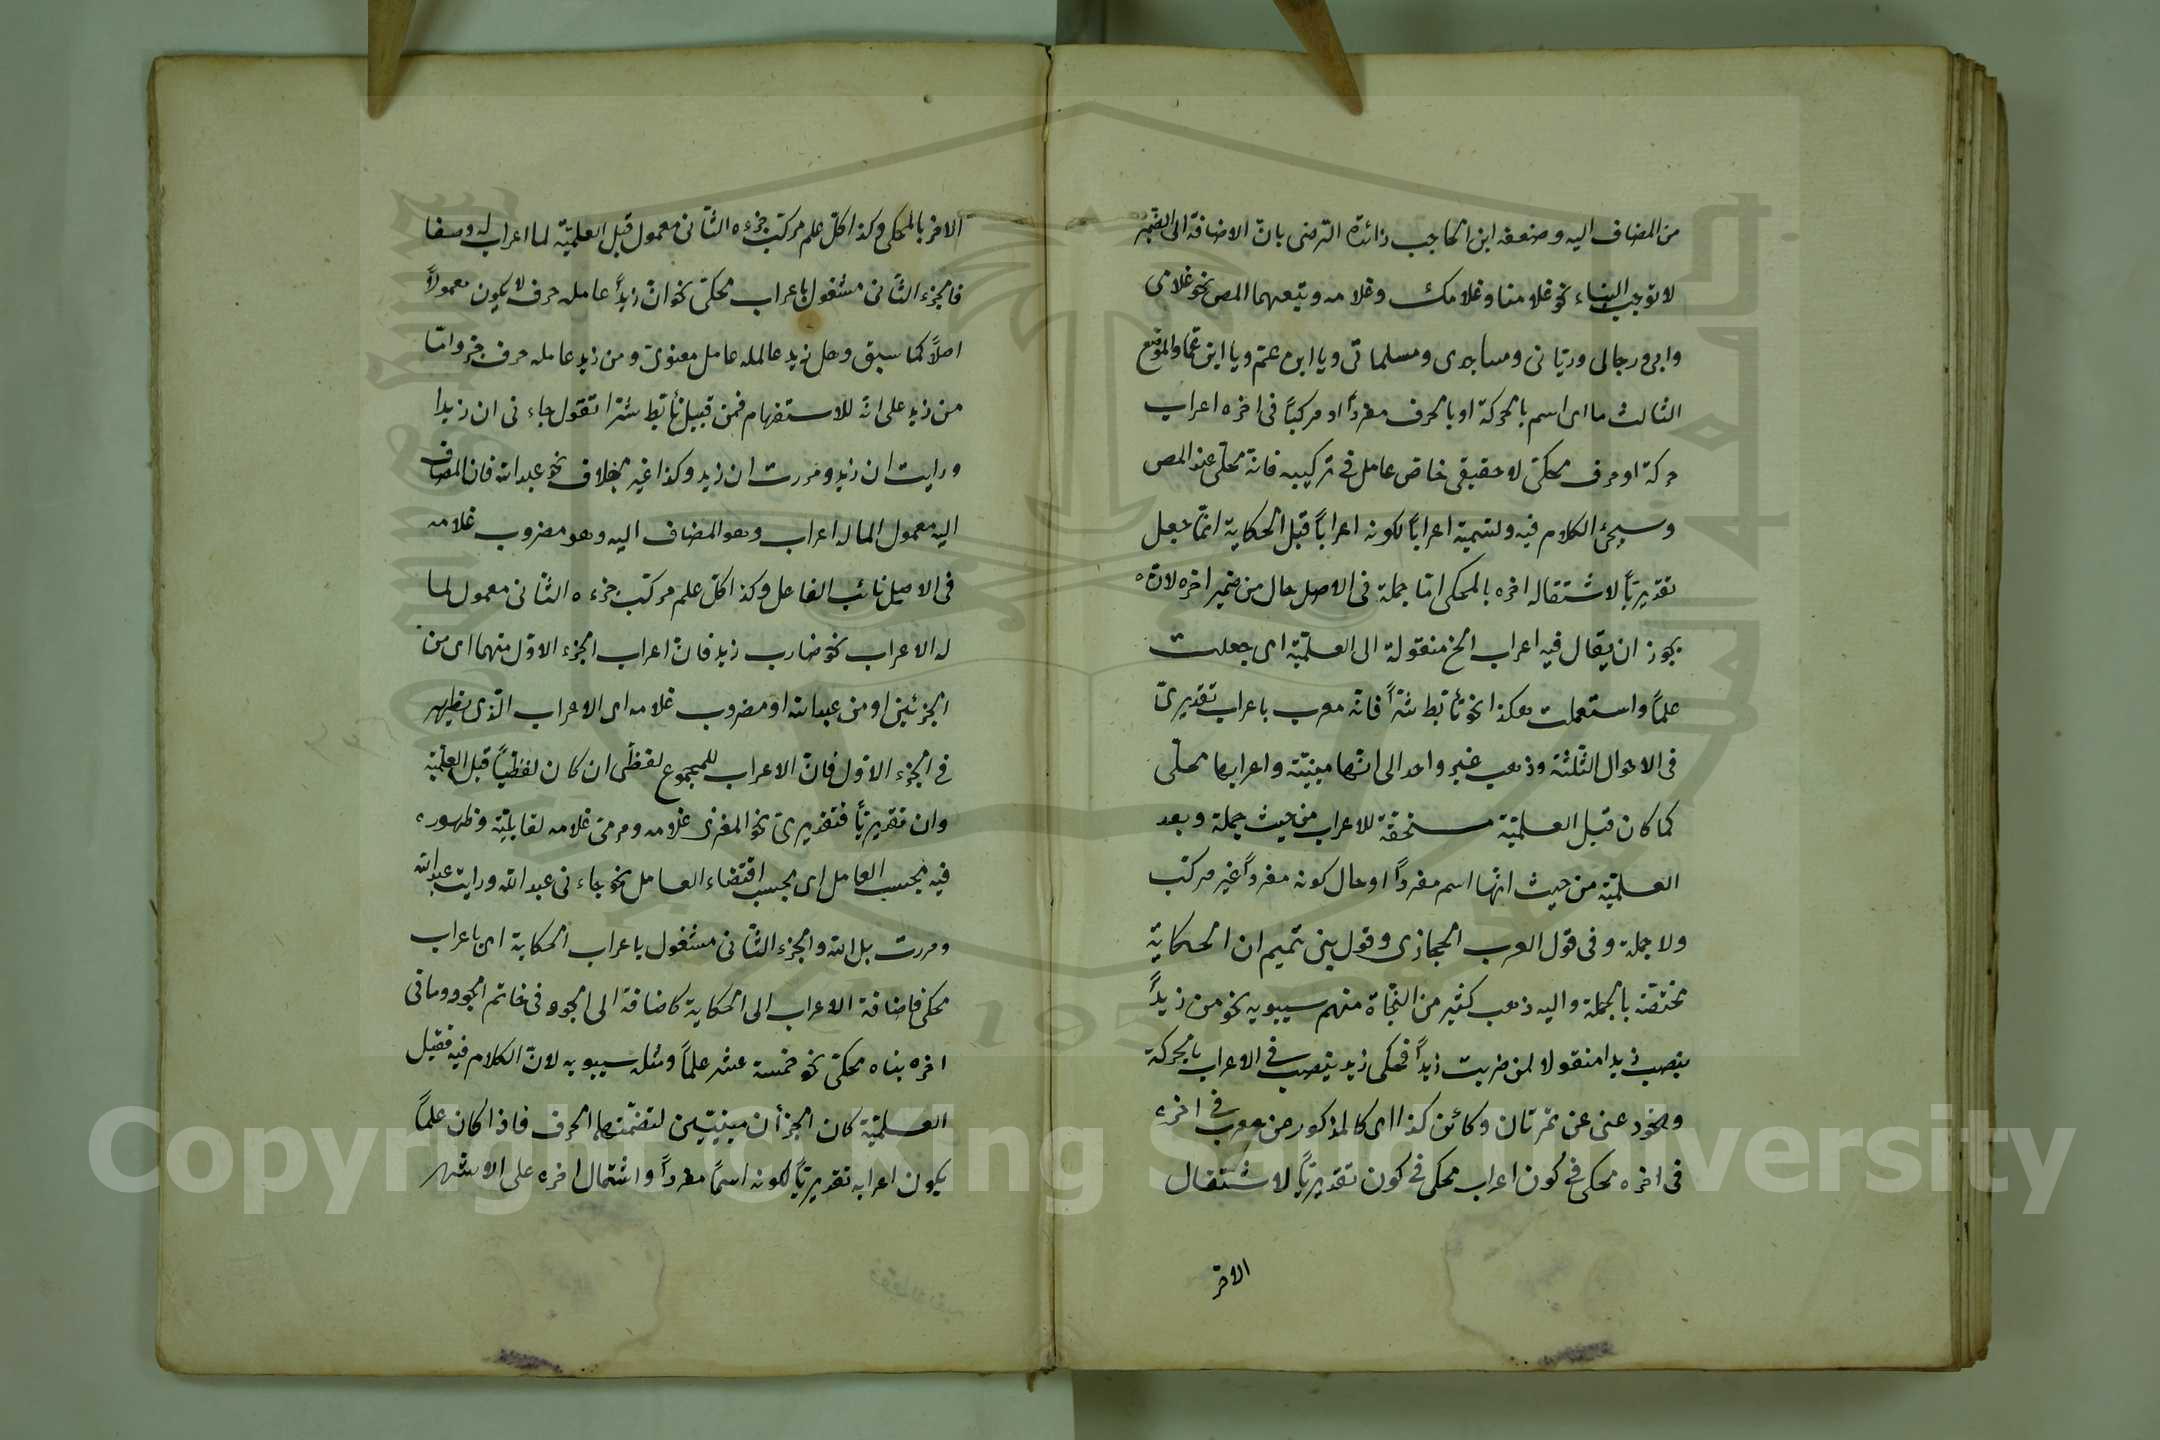 من المضاف اليه وضعفه ابن الحاجب الرضى بان الاضافة الى الضمير
لا توجب البناء نحو غلامنا وغلامك وغلامه وتبعهما المص نحو غلامى
ورجالى ومساجدى ومسلماتى ويا ابن عم ويا ابن عما والموقع
الثالث ما اى اسم بالحركة او بالحرف مفرداً او مركباً فى اخره اعراب
حركة او حرف محكى لا حقيقى خاص عامل فى تركيبه فانه محلى عند المص
وسيجئ الكلام فيه وتسمية اعراباً لكونه اعراباً قبل الحكاية انما جعل
تقديرياً لاشتغال اخره بالمحكى اما جملة فى الاصل حال من ضمير اخره لانه
يجوز ان يقال فيه اعراب الخ منقولة الى العلمية اى جعلت
علماً واستعملت هكذا نحو تأبط شرّاً فانه معرب باعراب تقديرىّ
فى الاحوال الثلثة وذهب غير واحد الى انها مبنيّة واعرابها محلى
كما كان قبل العلميّة مستحقة للاعراب من حيث جملة وبعد
العلميّة من حيث انها اسم مفرداً او حال كونه مفرداً غير مركب
ولا جملة وفى قول العرب الحجازى وقول بنى تميم ان الحكاية
مختصّة بالجملة واليه ذهب كثير من النحاة منهم سيبويه نحو من زيداً
بنصب زيدا منقولا لمن ضربت زيداً فحكى زيد بنصب فى الاعراب بالحركة
ونحو دعنى عن تمرتان وكائن كذا اى كالمذكور من معرب فى اخره
فى اخره محكى فى كون اعراب محكى فى كون تقديرياً لاشتغال
الاخر
الاخر بالمحكى وكذا كل علم مركب جزءه الثانى معمول قبل العلميّة لما اعراب له وصفا
فالجزء الثانى مشغول باعراب محكى نحو ان زيداً عامله حرف لا يكون معمولاً
اصلاً كما سبق وهل زيد عامله عامل معنوى ومن زيد عامله حرف جر واما
من زيد على انه للاستفهام فمن قبيل تأبط شرا تقول جاء نى ان زيدا
ورايت ان زيد ومررت ان زيد وكذا غير بخلاف نحو عبد الله فان المضاف
اليه معمول لما له اعراب وهو المضاف اليه وهو مضروب غلامه
فى الاصل نائب الفاعل وكذا كل علم مركب جزء ه الثانى معمول لما
له الاعراب نحو ضارب زيد فان اعراب الجزء الاول منهما اى من
الجزئين او من عبد الله او مضروب غلامه اى الاعراب الذى يظهر
فى الجزء الاول فان الاعراب للمجموع لفظى ان كان لفظياً قبل العلميّة
وان تقديرياً فتقديرىّ نحو المغزى غلامه ومرمى غلامه لقابليّة وظهوره
فيه بحسب العامل اى بحسب اقتضاء العامل نحو جاء نى عبد الله ورايت عبد الله
ومررت بل الله والجزء الثانى مشغول باعراب الحكاية اى باعراب
محكى فاضافة الاعراب الى الحكاية كاضافة الى الجود فى خاتم الجود وما فى
اخره بناء محكى نحو خمسة عشر علماً ومثله سيبويه لان الكلام فيه فقبل
العلميّة كان الجزأن مبنيّين لتضمنهما الحرف فاذا كان علماً
يكون اعرابه تقديرياً لكونه اسماً مفرداً واشتمال اخره على الاشهر
Copyright © King Saud University
1957